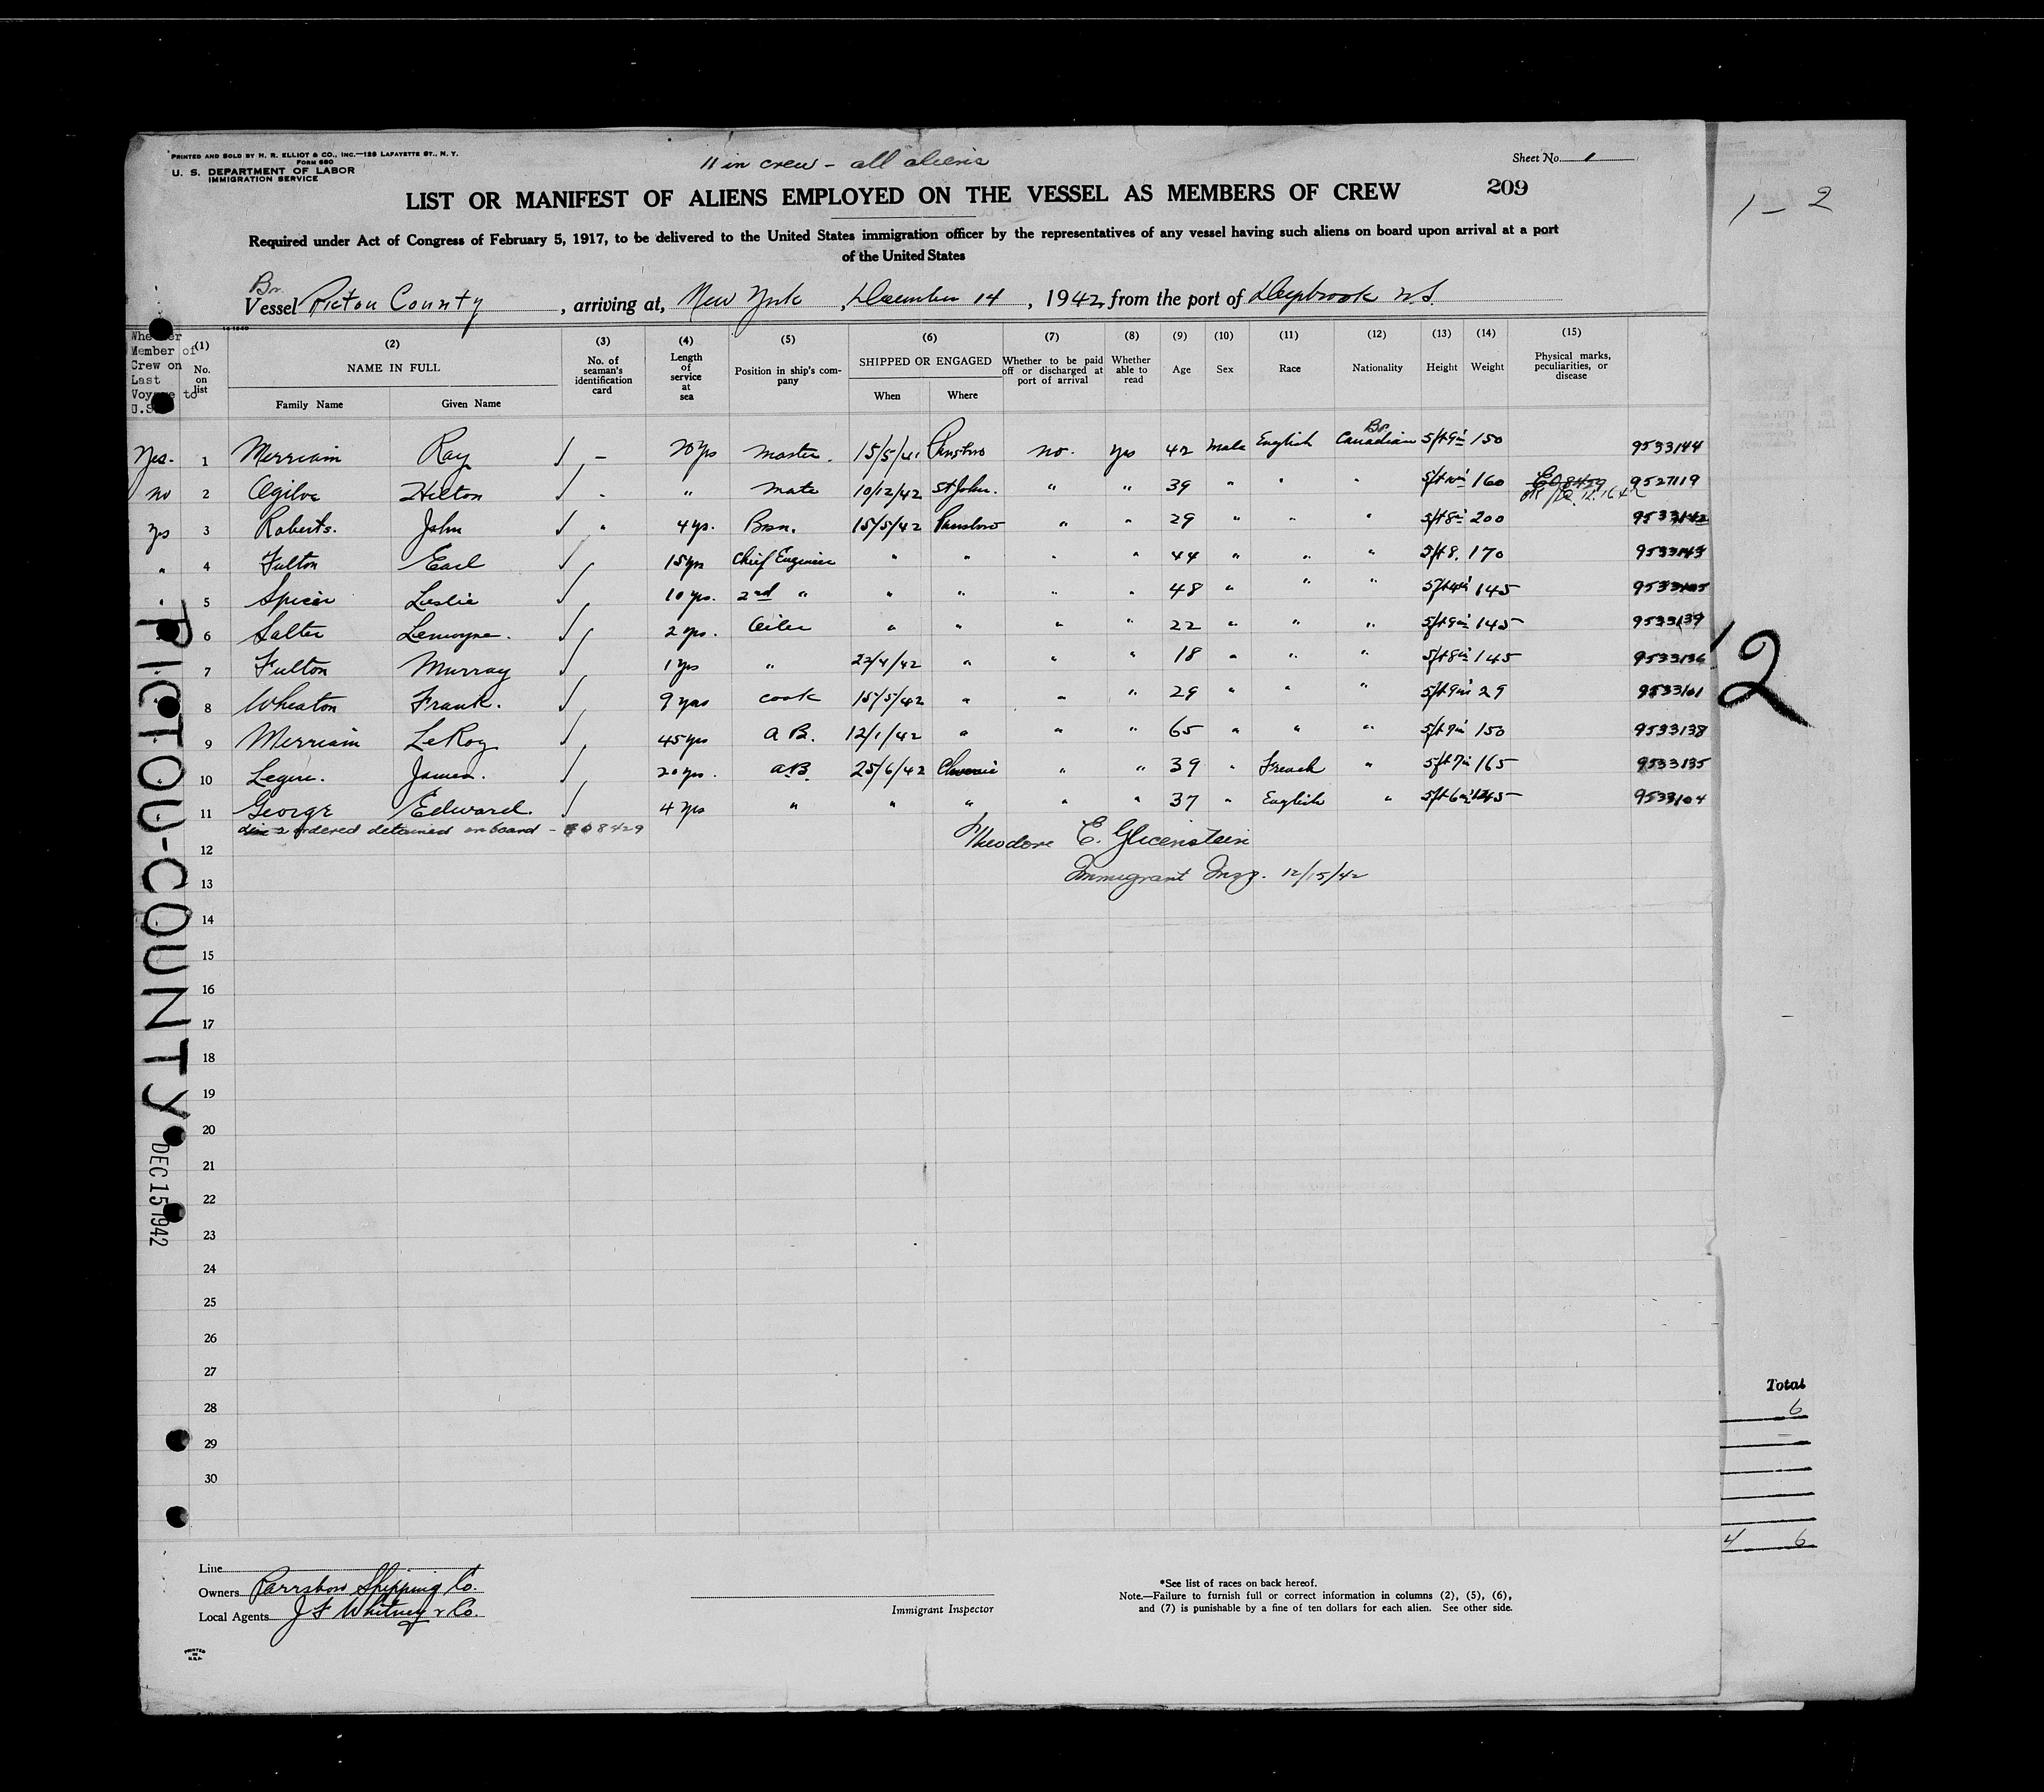 PRINTED AND SOLD BY H. R. ELLIOT & CO., INC.—129 LAFAYETTE ST., N. Y.
FORM 680
U. S. DEPARTMENT OF LABOR
IMMIGRATION SERVICE
11 in crew - all aliens
Sheet No. 1
LIST OR MANIFEST OF ALIENS EMPLOYED ON THE VESSEL AS MEMBERS OF CREW
209
1 - 2
Required under Act of Congress of February 5, 1917, to be delivered to the United States immigration officer by the representatives of any vessel having such aliens on board upon arrival at a port
of the United States
Br.
Vessel Pictou County, arriving at, New York, December 14, 1942, from the port of N.S.
Whether Member of Crew on Last Voyage to U.S.
(1) No. on list
(2) NAME IN FULL
Family Name Given Name
(3) No. of seaman's identification card
(4) Length of service at sea
(5) Position in ship's company
(6) SHIPPED OR ENGAGED
When Where
(7) Whether to be paid off or discharged at port of arrival
(8) Whether able to read
(9) Age
(10) Sex
(11) Race
(12) Nationality
(13) Height
(14) Weight
(15) Physical marks, peculiarities, or disease
Yes. 1 Merriam Ray √ - 20 yrs Master. 15/5/41 no. yes 42 Male English Br. Canadian 5ft9in 150 9533144
no 2 Ogilvie Hilton √ " Mate 10/12/42 St John. " " 39 " " " 160 9527119
yes 3 Roberts. John √ " 4 yr. Bosn. 15/5/42 Parrsboro " " 29 " " " 5ft8in 200 9533142
" 4 Fulton Earl √ 15 yrs Chief Engineer " " " " 44 " " " 5ft8. 170
" 5 Spicer Leslie √ 10 yrs. 2nd " " " " " 48 " " " 145
6 Salter Lemoyne. √ 2 yrs. Oiler " " " " 22 " " " 5ft9in 145 9533139
7 Fulton Murray √ 1 yrs " 22/4/42 " " " 18 " " " 5ft8in 145 9533136
8 Wheaton Frank. √ 9 yrs cook 15/5/42 " " " 29 " " " 5ft9in 29 9533101
9 Merriam LeRoy √ 45 yrs A B. 12/1/42 " " " 65 " " " 5ft9in 150 9533138
10 Legere. James. √ 20 yrs. A.B. 25/6/42 " " 39 " French " 5ft7in 165 9533135
11 George Edward. √ 4 yrs " " " " " 37 " English " 5ft6in 145 9533104
Line 2 ordered detained on board - 608429
Theodore E. Glicenstein
Immigrant Insp. 12/15/42
12
13
14
15
16
17
18
19
20
21
22
23
24
25
26
27
28
29
30
PICTOU-COUNTY
DEC 15 1942
12
Total
6
4 6
Line
Owners Parrsboro Shipping Co.
Local Agents J F Whitney & Co.
Immigrant Inspector
*See list of races on back hereof.
Note.—Failure to furnish full or correct information in columns (2), (5), (6),
and (7) is punishable by a fine of ten dollars for each alien. See other side.
PRINTED IN U.S.A.